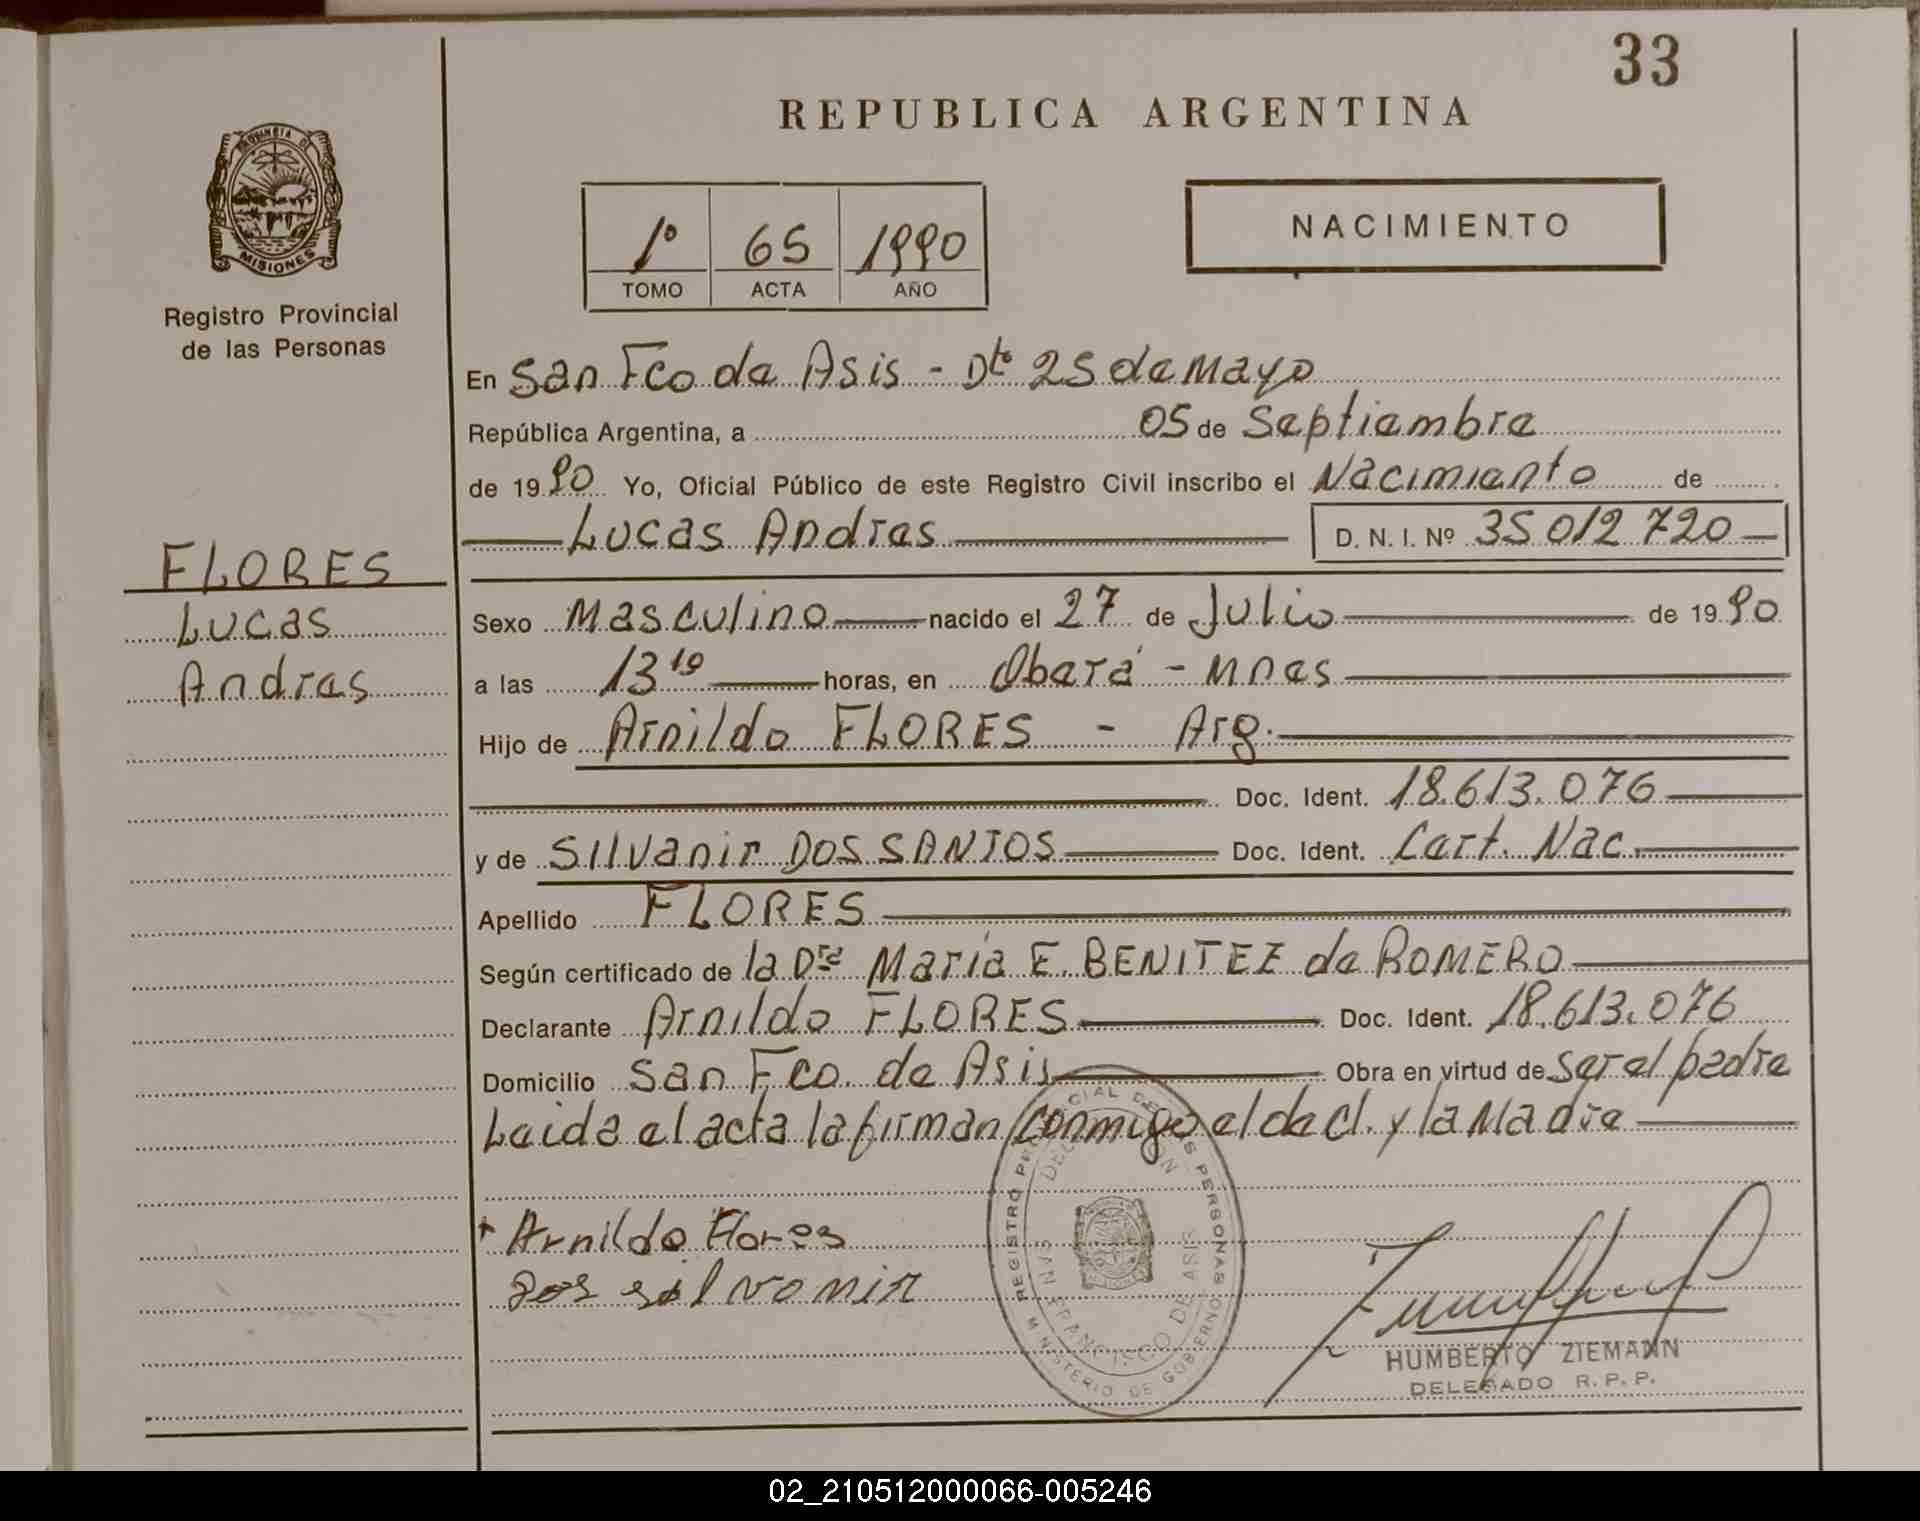 33
REPUBLICA ARGENTINA
PROVINCIA DE
MISIONES
Registro Provincial
de las Personas
1º 65 1990
TOMO ACTA AÑO
NACIMIENTO
En San Fco de Asis - Dto 25 de Mayo
República Argentina, a 05 de Septiembre
de 1990 Yo, Oficial Público de este Registro Civil inscribo el Nacimiento de
Lucas Andres D. N. I. Nº 35 012 720
FLORES
Lucas
Andres
Sexo Masculino nacido el 27 de Julio de 1990
a las 13 10 horas, en Oberá - Mnes
Hijo de Arnildo FLORES - Arg.
Doc. Ident. 18.613.076
y de Silvanir DOS SANTOS Doc. Ident. Cart. Nac.
Apellido FLORES
Según certificado de la Dra María E. BENITEZ de ROMERO
Declarante Arnildo FLORES Doc. Ident. 18.613.076
Domicilio San Fco. de Asis Obra en virtud de ser el padre
Leida el acta la firman conmigo el decl. y la Madre
Arnildo Flores
dos silvanir
REGISTRO PROVINCIAL DE LAS PERSONAS
DELEGACION
SAN FRANCISCO DE ASIS
MINISTERIO DE GOBIERNO
HUMBERTO ZIEMANN
DELEGADO R. P. P.
02_210512000066-005246